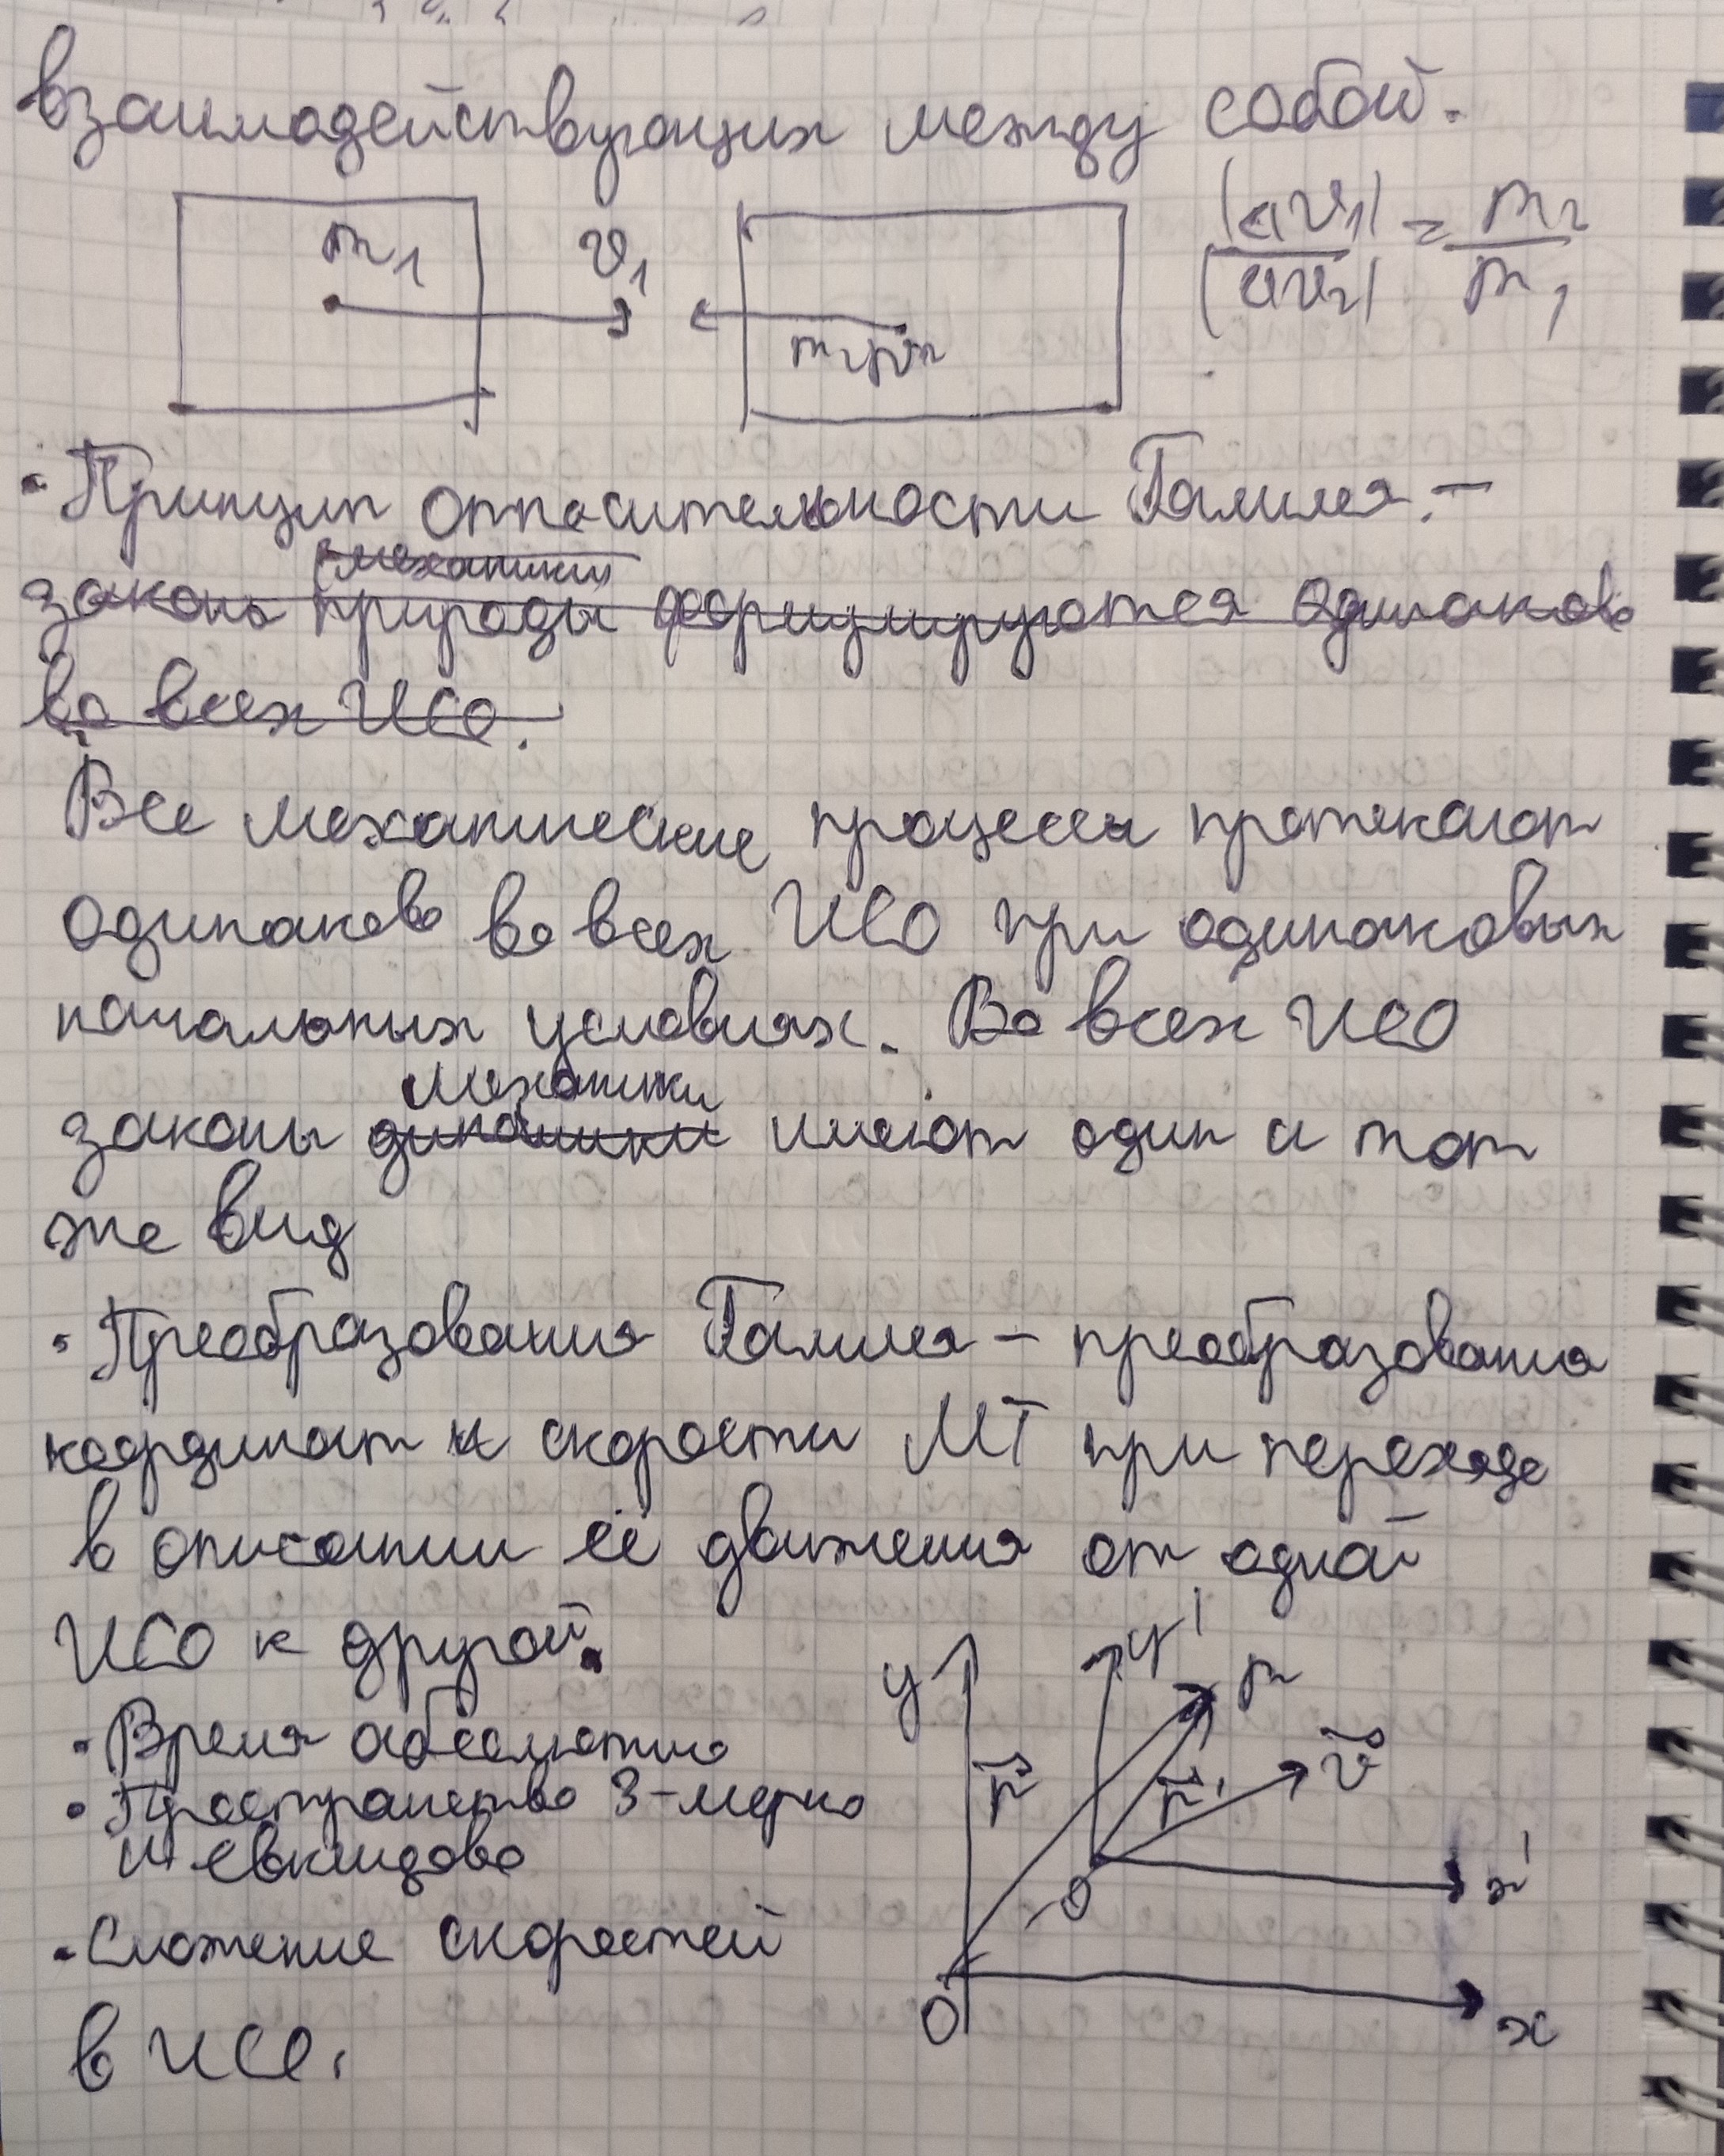 взаимодействующих между собой.
m₁ v₁
|Δv₁| / |Δv₂| = m₂ / m₁
m₂
· Принцип относительности Галилея. –
механики
законы природы формулируются одинаково
во всех ИСО.
Все механические процессы протекают
одинаково во всех ИСО при одинаковых
начальных условиях. Во всех ИСО
механики
законы динамики имеют один и тот
же вид
· Преобразования Галилея – преобразования
координат и скорости МТ при переходе
в описании её движения от одной
ИСО к другой.
· Время абсолютно
· Пространство 3-мерно
и евклидово
· Сложение скоростей
в ИСО.
y y' m
r⃗ r⃗' v⃗
O' x'
O x